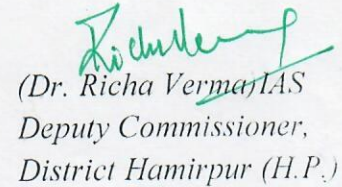 (Dr. Richa Verma)IAS
Deputy Commissioner,
District Hamirpur (H.P.)